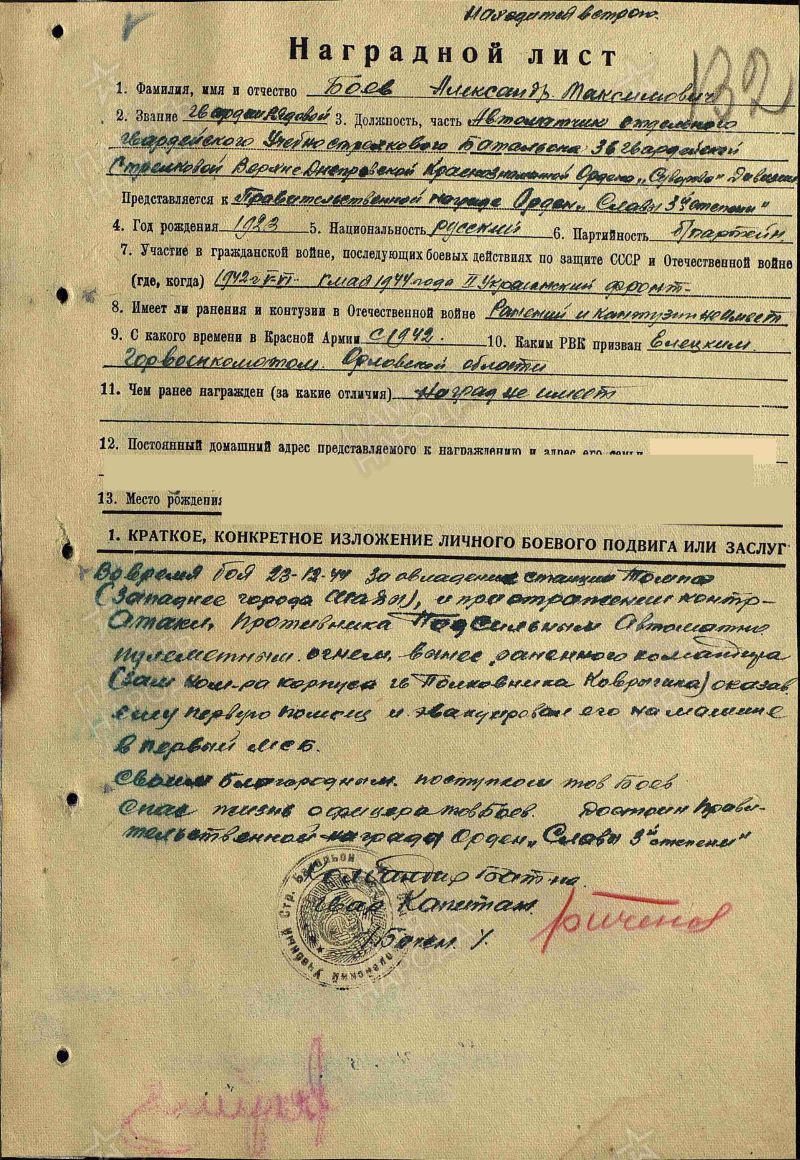 Находится в строю.
132
Наградной лист
1. Фамилия, имя и отчество Боев Александр Максимович
2. Звание гвардии Рядовой 3. Должность, часть Автоматчик отдельного
гвардейского Учебно стрелкового Батальона 36 гвардейской
Стрелковой Верхне Днепровской Краснознаменной Ордена „Суворова" Дивизии
Представляется к Правительственной награде Орден „Славы 3й степени"
4. Год рождения 1923 5. Национальность русский 6. Партийность б/партейн.
7. Участие в гражданской войне, последующих боевых действиях по защите СССР и Отечественной войне
(где, когда) 1942 г V-VI с мая 1944 года II Украинский фронт
8. Имеет ли ранения и контузии в Отечественной войне Ранений и контузии не имеет
9. С какого времени в Красной Армии с 1942. 10. Каким РВК призван Елецким
Горвоенкоматом Орловской области
11. Чем ранее награжден (за какие отличия) Наград не имеет
12. Постоянный домашний адрес представляемого к награждению и адрес его семьи
13. Место рождения
1. КРАТКОЕ, КОНКРЕТНОЕ ИЗЛОЖЕНИЕ ЛИЧНОГО БОЕВОГО ПОДВИГА ИЛИ ЗАСЛУГ
Во время боя 23-12-44 за овладение станции
(Западнее города), и при отражении контр-
Атаки Противника Под сильным Автоматно
пулеметным огнем, вынес раненного командира
(Зам ком-ра корпуса гв Полковника Коврыгина) оказав
ему первую помощ и эвакуировал его на машине
в первый МСБ.
Своим благородным поступком тов Боев
Спас жизнь офицера тов Боев. Достоин Прави-
тельственной награда Орден „Славы 3й степени"
Командир Бат-на
гвар Капитан
Учебный Стр. Батальон